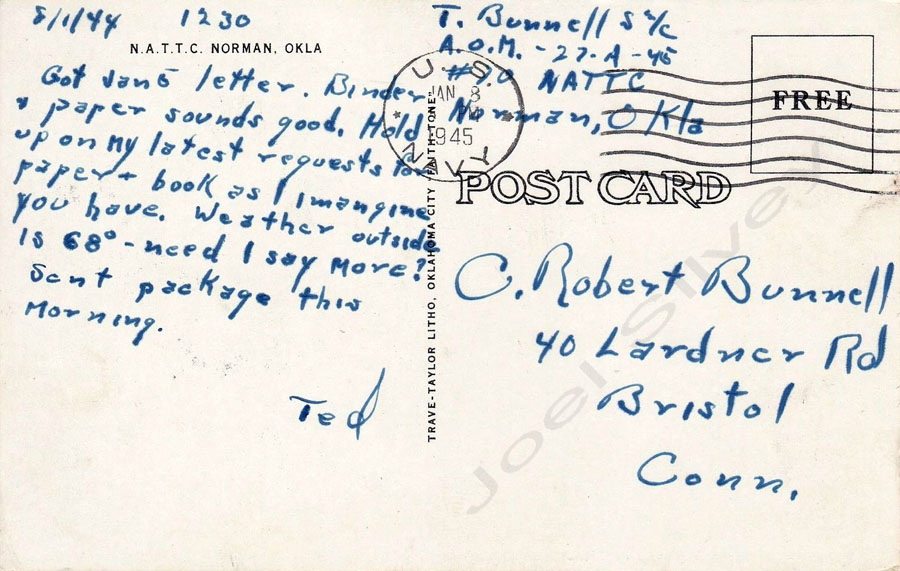 8/1/44 1230
N.A.T.T.C. NORMAN, OKLA
Got Jan 5 letter. Binder
+ paper sounds good. Hold
up on my latest requests for
paper + book as I imangine
you have. Weather outside
is 68° - need I say more?
Sent package this
morning.
Ted
TRAVE-TAYLOR LITHO, OKLAHOMA CITY "FAITH-TONE"
T. Bunnell S 2/c
A.O.M. - 27-A-45
NATTC
Norman, Okla
U.S.
JAN 8
1945
NAVY
FREE
POST CARD
C. Robert Bunnell
40 Lardner Rd
Bristol
Conn.
Joel Silvey